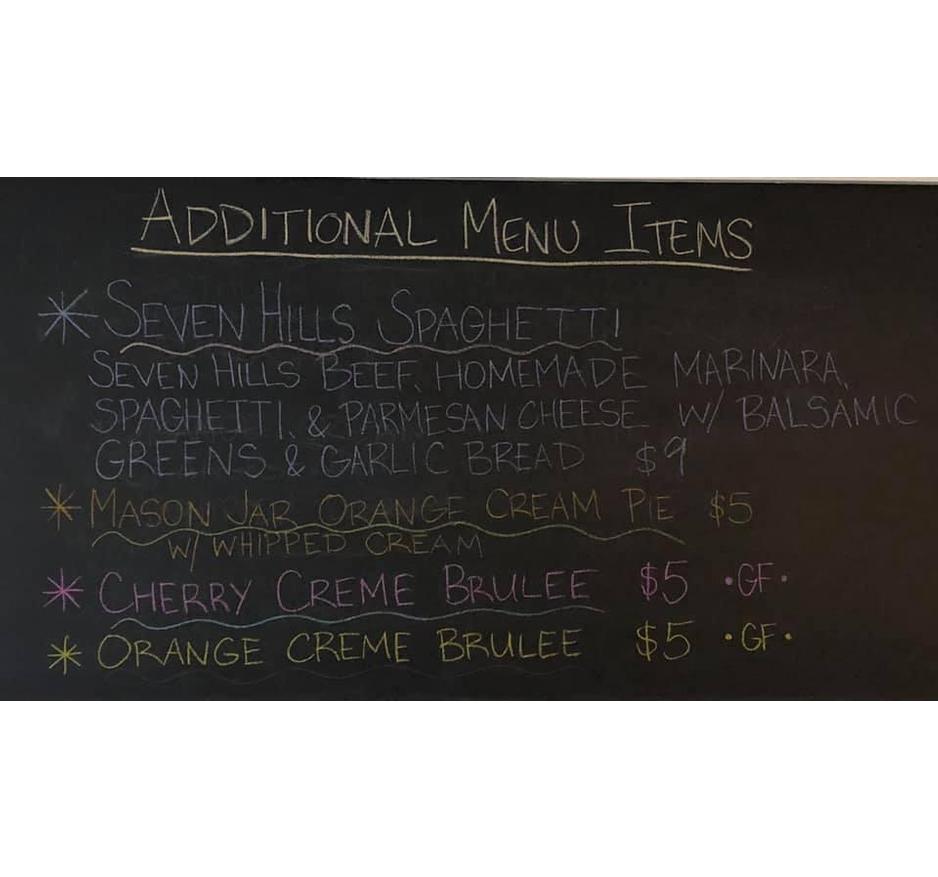 ADDITIONAL MENU ITEMS
* SEVEN HILLS SPAGHETTI
SEVEN HILLS BEEF, HOMEMADE MARINARA,
SPAGHETTI, & PARMESAN CHEESE W/ BALSAMIC
GREENS & GARLIC BREAD $9
* MASON JAR ORANGE CREAM PIE $5
W/ WHIPPED CREAM
* CHERRY CREME BRULEE $5 •GF•
* ORANGE CREME BRULEE $5 •GF•